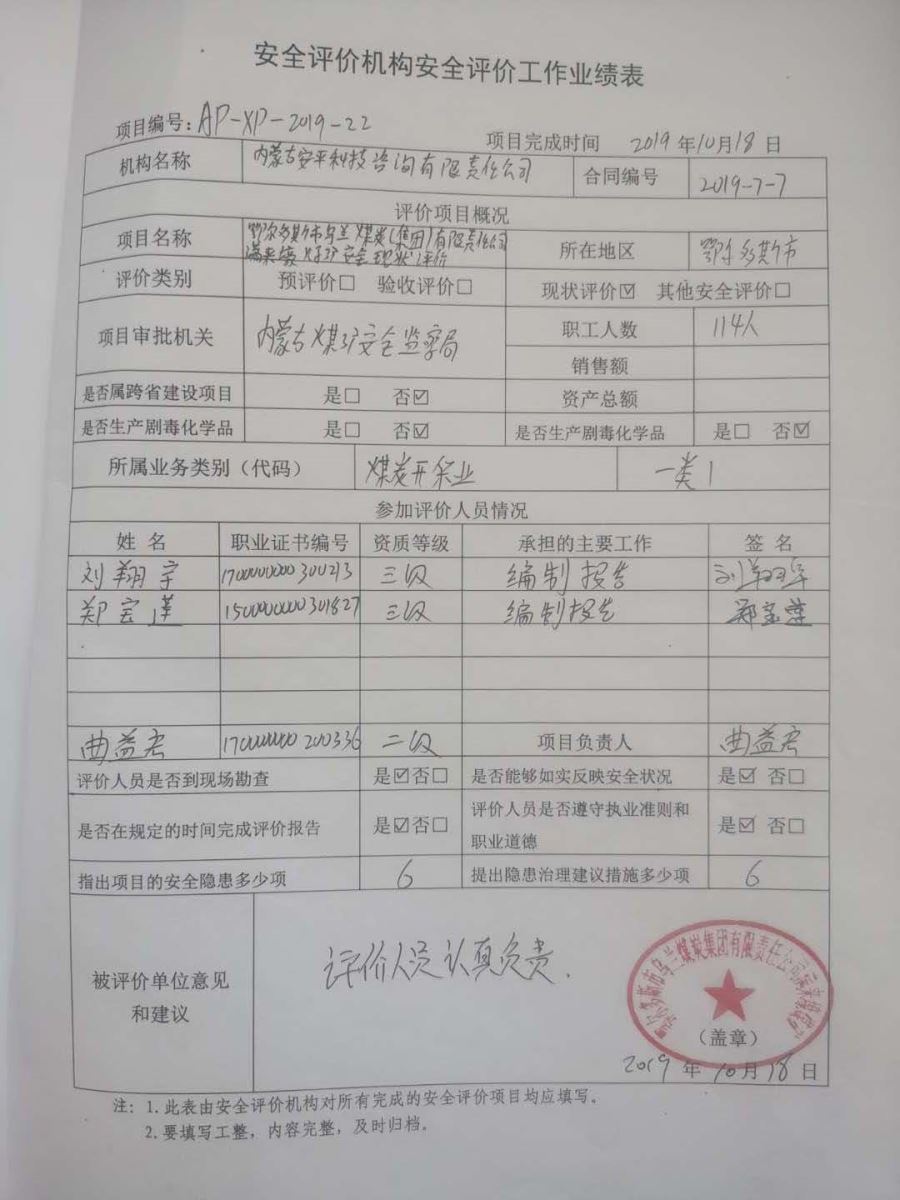 安全评价机构安全评价工作业绩表
项目编号：AP-XP-2019-22
项目完成时间 2019年10月18日
机构名称 内蒙古安平科技咨询有限责任公司 合同编号 2019-7-7
评价项目概况
项目名称 鄂尔多斯市乌兰煤炭(集团)有限责任公司
满来梁煤矿安全现状评价
所在地区 鄂尔多斯市
评价类别 预评价□ 验收评价□ 现状评价☑ 其他安全评价□
项目审批机关 内蒙古煤矿安全监察局 职工人数 114人
销售额
是否属跨省建设项目 是□ 否☑ 资产总额
是否生产剧毒化学品 是□ 否☑ 是否生产剧毒化学品 是□ 否☑
所属业务类别（代码） 煤炭开采业 一类1
参加评价人员情况
姓 名 职业证书编号 资质等级 承担的主要工作 签 名
刘翔宇 三级 编制报告 刘翔宇
郑宝莲 三级 编制报告 郑宝莲
曲益宏 二级 项目负责人 曲益宏
评价人员是否到现场勘查 是☑否□ 是否能够如实反映安全状况 是☑ 否□
是否在规定的时间完成评价报告 是☑否□ 评价人员是否遵守执业准则和
职业道德 是☑ 否□
指出项目的安全隐患多少项 6 提出隐患治理建议措施多少项 6
被评价单位意见
和建议
评价人员认真负责.
鄂尔多斯市乌兰煤炭集团有限责任公司满来梁煤矿
（盖章）
2019年10月18日
注：1. 此表由安全评价机构对所有完成的安全评价项目均应填写。
2. 要填写工整，内容完整，及时归档。